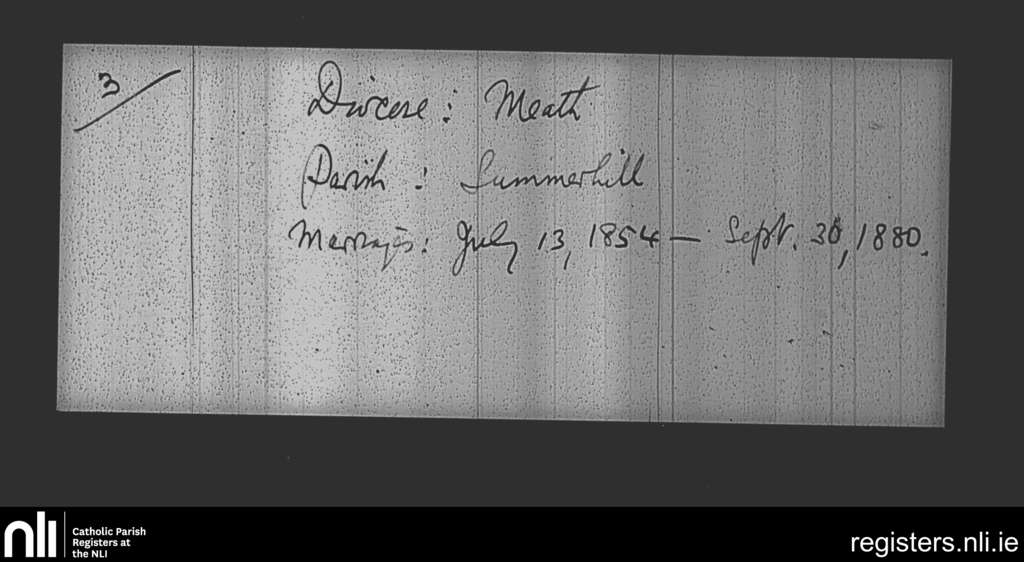 3
Diocese: Meath
Parish: Summerhill
Marriages: July 13, 1854 — Sept. 30, 1880.
nli
Catholic Parish
Registers at
the NLI
registers.nli.ie